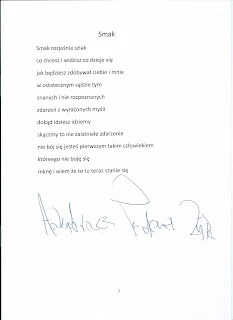 Smak
Smak rozjaśnia szlak
co chcesz i widzisz co dzieje się
jak będziesz zdobywał ciebie i mnie
w ostatecznym sądzie tym
znanych i nie rozpoznanych
zdarzeń z wyrażonych myśli
dokąd idziesz idziemy
skączmy to nie zaistniałe zdarzenie
nie bój się jesteś pierwszym takim człowiekiem
którego nie boję się
mknę i wiem że to tu teraz stanie się
1